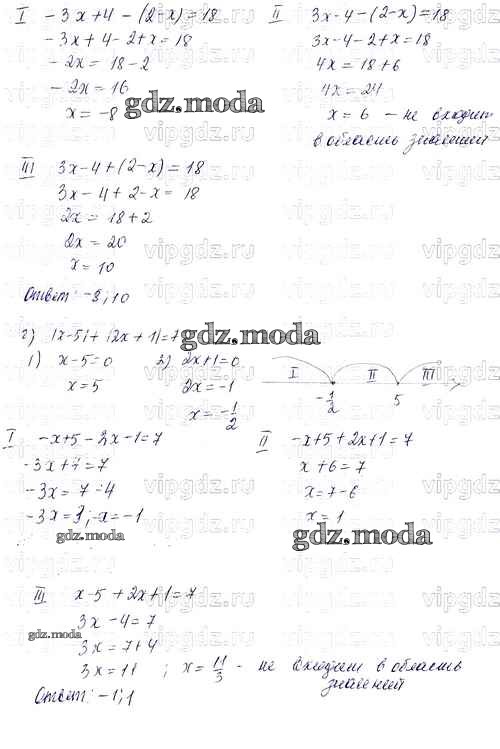 I -3x+4-(2-x)=18
-3x+4-2+x=18
-2x=18-2
-2x=16
x=-8
II 3x-4-(2-x)=18
3x-4-2+x=18
4x=18+6
4x=24
x=6 - не входит
в область значений
gdz.moda
III 3x-4+(2-x)=18
3x-4+2-x=18
2x=18+2
2x=20
x=10
Ответ: -8; 10
г) |x-5|+|2x+1|=7
gdz.moda
1) x-5=0 2) 2x+1=0
x=5 2x=-1
x=-1/2
I II III
-1/2 5 x
I -x+5-2x-1=7
-3x+4=7
-3x=7-4
-3x=3; x=-1
gdz.moda
II -x+5+2x+1=7
x+6=7
x=7-6
x=1
gdz.moda
III x-5+2x+1=7
3x-4=7
gdz.moda
3x=7+4
3x=11 ; x=11/3 - не входит в область
значений
Ответ: -1; 1
vipgdz.ru